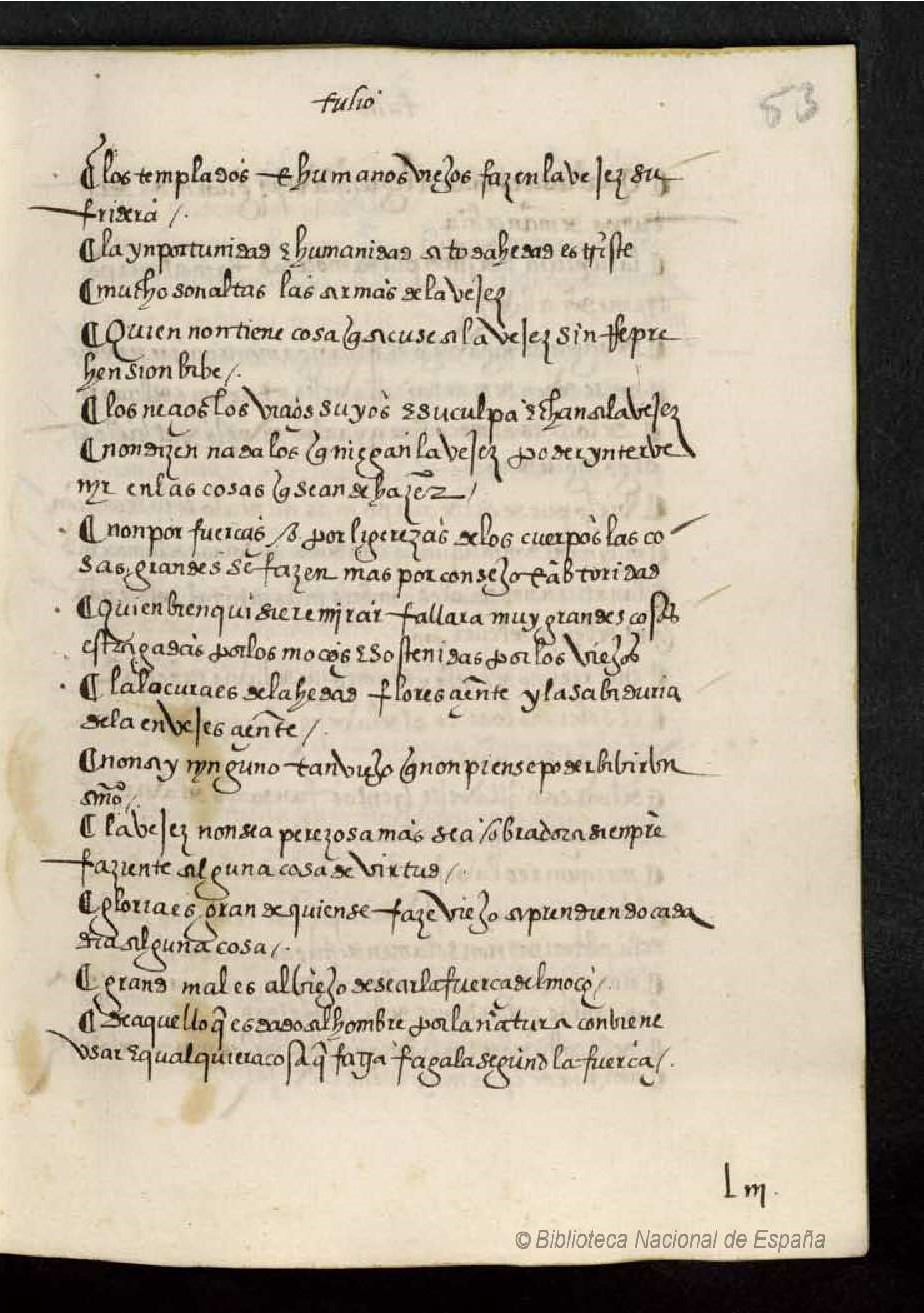 tulio
53
¶ los templados e humanos viejos fazen la vejez su
fridera /.
¶ la ynportunidad & humanidad a toda hedad es triste
¶ mucho son altas las armas de la vejez
¶ Quien non tiene cosa q̃ acuse a la vejez sin Repre
hension bibe /.
¶ los neçios los viçios suyos & su culpa echan a la vejez
¶ non dizen nada los q̃ niegan la vejez poder ynterve
nyr en las cosas q̃ sean de hazer /
¶ non por fuerças / o por ligerezas de los cuerpos las co
sas grandes se fazen mas por consejo e abtoridad
¶ Quien bien quisiere mirar fallara muy grandes cosas
estragadas por los moços & sostenidas por los viejos
¶ la locura es de la hedad floresçẽnte y la sabiduria
de la envejesçẽnte /.
¶ non ay nynguno tan viejo q̃ non piense poder bibir un
año /.
¶ la vejez non sea perezosa mas sea / obradora sienpre
faziente alguna cosa de virtud /.
¶ gloria es grande quien se faze viejo aprendiendo cada
dia alguna cosa /.
¶ grand mal es al viejo desear la fuerça del moço /.
¶ De aquello q̃ es dado al hombre por la natura conviene
usar & qualquiera cosa q̃ faga fagala segund la fuerça /.
L iij.
© Biblioteca Nacional de España